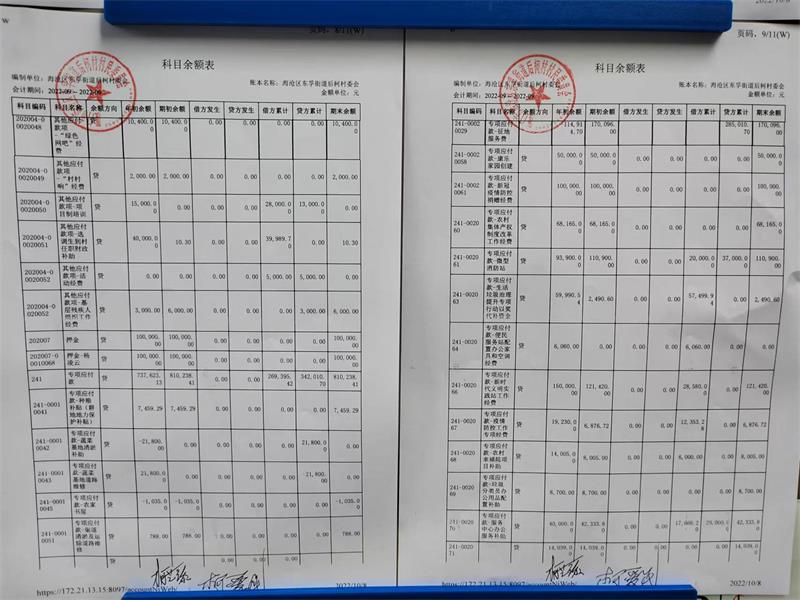 页码，8/11(W)
科目余额表
编制单位：海沧区东孚街道后柯村村委会
账本名称：海沧区东孚街道后柯村委会
会计期间：2022-09－2022-09
金额单位：元
科目编码 科目名称 余额方向 年初余额 期初余额 借方发生 贷方发生 借方累计 贷方累计 期末余额
202004-00020048 其他应付款项-"绿色网吧"经费 贷 10,400.00 10,400.00 0.00 0.00 0.00 0.00 10,400.00
202004-00020049 其他应付款项-"村村响"经费 贷 2,000.00 2,000.00 0.00 0.00 0.00 0.00 2,000.00
202004-00020050 其他应付款项-项目制培训 贷 15,000.00 0.00 0.00 0.00 28,000.00 13,000.00 0.00
202004-00020051 其他应付款项-选调生到村任职财政补助 贷 40,000.00 10.30 0.00 0.00 39,989.70 0.00 10.30
202004-00020052 其他应付款项-活动经费 贷 0.00 0.00 0.00 0.00 5,000.00 5,000.00 0.00
202004-00020052 其他应付款项-基层残疾人组织工作经费 贷 3,000.00 6,000.00 0.00 0.00 0.00 3,000.00 6,000.00
202007 押金 贷 100,000.00 100,000.00 0.00 0.00 0.00 0.00 100,000.00
202007-00010068 押金-杨凌云 贷 100,000.00 100,000.00 0.00 0.00 0.00 0.00 100,000.00
241 专项应付款 贷 737,623.13 810,238.41 0.00 0.00 269,395.42 342,010.70 810,238.41
241-00010041 专项应付款-种粮补贴（耕地地力保护补贴） 贷 7,459.29 7,459.29 0.00 0.00 0.00 0.00 7,459.29
241-00010042 专项应付款-蔬菜基地清淤补助 贷 -21,800.00 0.00 0.00 0.00 0.00 21,800.00 0.00
241-00010043 专项应付款-蔬菜基地道路维修 贷 21,800.00 0.00 0.00 0.00 0.00 -21,800.00 0.00
241-00010045 专项应付款-农家书屋 贷 -1,035.00 -1,035.00 0.00 0.00 0.00 0.00 -1,035.00
241-00010051 专项应付款-渠道清淤及运输道路维修 贷 788.00 788.00 0.00 0.00 0.00 0.00 788.00
贷 0.00 0.00 0.00 0.00
https://172.21.13.15:8097/accountNiWeb/
2022/10/8
页码，9/11(W)
科目余额表
编制单位：海沧区东孚街道后柯村村委会
账本名称：海沧区东孚街道后柯村委会
会计期间：2022-09－2022-09
金额单位：元
科目编码 科目名称 余额方向 年初余额 期初余额 借方发生 贷方发生 借方累计 贷方累计 期末余额
241-00020029 专项应付款-征地服务费 贷 -114,914.70 170,096.00 0.00 0.00 0.00 285,010.70 170,096.00
241-00020058 专项应付款-康乐家园创建 贷 50,000.00 50,000.00 0.00 0.00 0.00 0.00 50,000.00
241-00020061 专项应付款-新冠疫情防控捐赠经费 贷 100,000.00 100,000.00 0.00 0.00 0.00 0.00 100,000.00
241-002060 专项应付款-农村集体产权制度改革工作经费 贷 68,165.00 68,165.00 0.00 0.00 0.00 0.00 68,165.00
241-002061 专项应付款-微型消防站 贷 93,900.00 110,900.00 0.00 0.00 20,000.00 37,000.00 110,900.00
241-002063 专项应付款-生活垃圾治理提升专项行动以奖代补资金 贷 59,990.54 2,490.60 0.00 0.00 57,499.94 0.00 2,490.60
241-002064 专项应付款-便民服务站配置办公家具和空调经费 贷 6,060.00 0.00 0.00 0.00 6,060.00 0.00 0.00
241-002066 专项应付款-新时代文明实践站工作经费 贷 150,000.00 121,420.00 0.00 0.00 28,580.00 0.00 121,420.00
241-002067 专项应付款-疫情防控工作专项经费 贷 19,230.00 6,876.72 0.00 0.00 12,353.28 0.00 6,876.72
241-002068 专项应付款-农村幸福院项目补助 贷 14,005.00 8,005.00 0.00 0.00 6,000.00 0.00 8,005.00
241-002069 专项应付款-垃圾分类员办公用品配置补助 贷 8,700.00 8,700.00 0.00 0.00 0.00 0.00 8,700.00
241-002070 专项应付款-服务中心办公服务补助 贷 42,333.00 0.00 0.00 42,333.00
241-002071 贷 14,039.00 14,039.00 0.00 0.00 0.00 0.00 14,039.00
https://172.21.13.15:8097/accountNiWeb/
2022/10/8